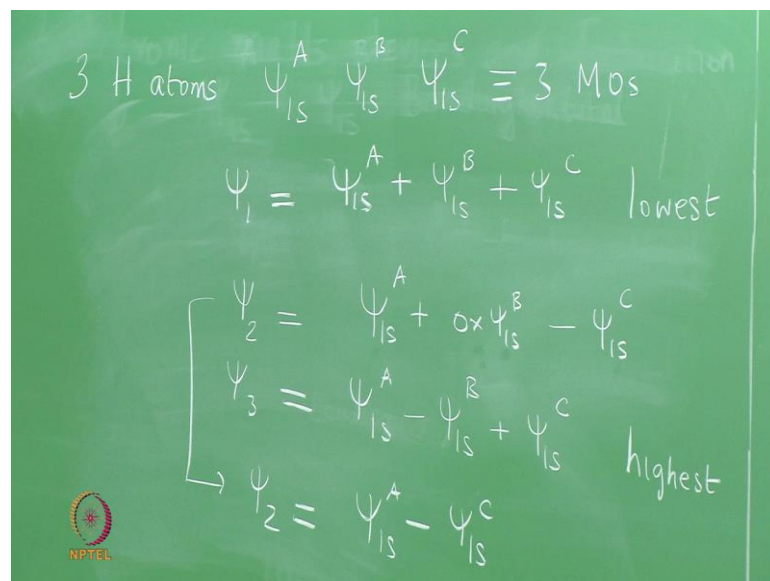 3 H atoms ψ₁ₛᴬ ψ₁ₛᴮ ψ₁ₛᶜ ≡ 3 MOs
ψ₁ = ψ₁ₛᴬ + ψ₁ₛᴮ + ψ₁ₛᶜ lowest
ψ₂ = ψ₁ₛᴬ + 0×ψ₁ₛᴮ − ψ₁ₛᶜ
ψ₃ = ψ₁ₛᴬ − ψ₁ₛᴮ + ψ₁ₛᶜ highest
→ ψ₂ = ψ₁ₛᴬ − ψ₁ₛᶜ
NPTEL